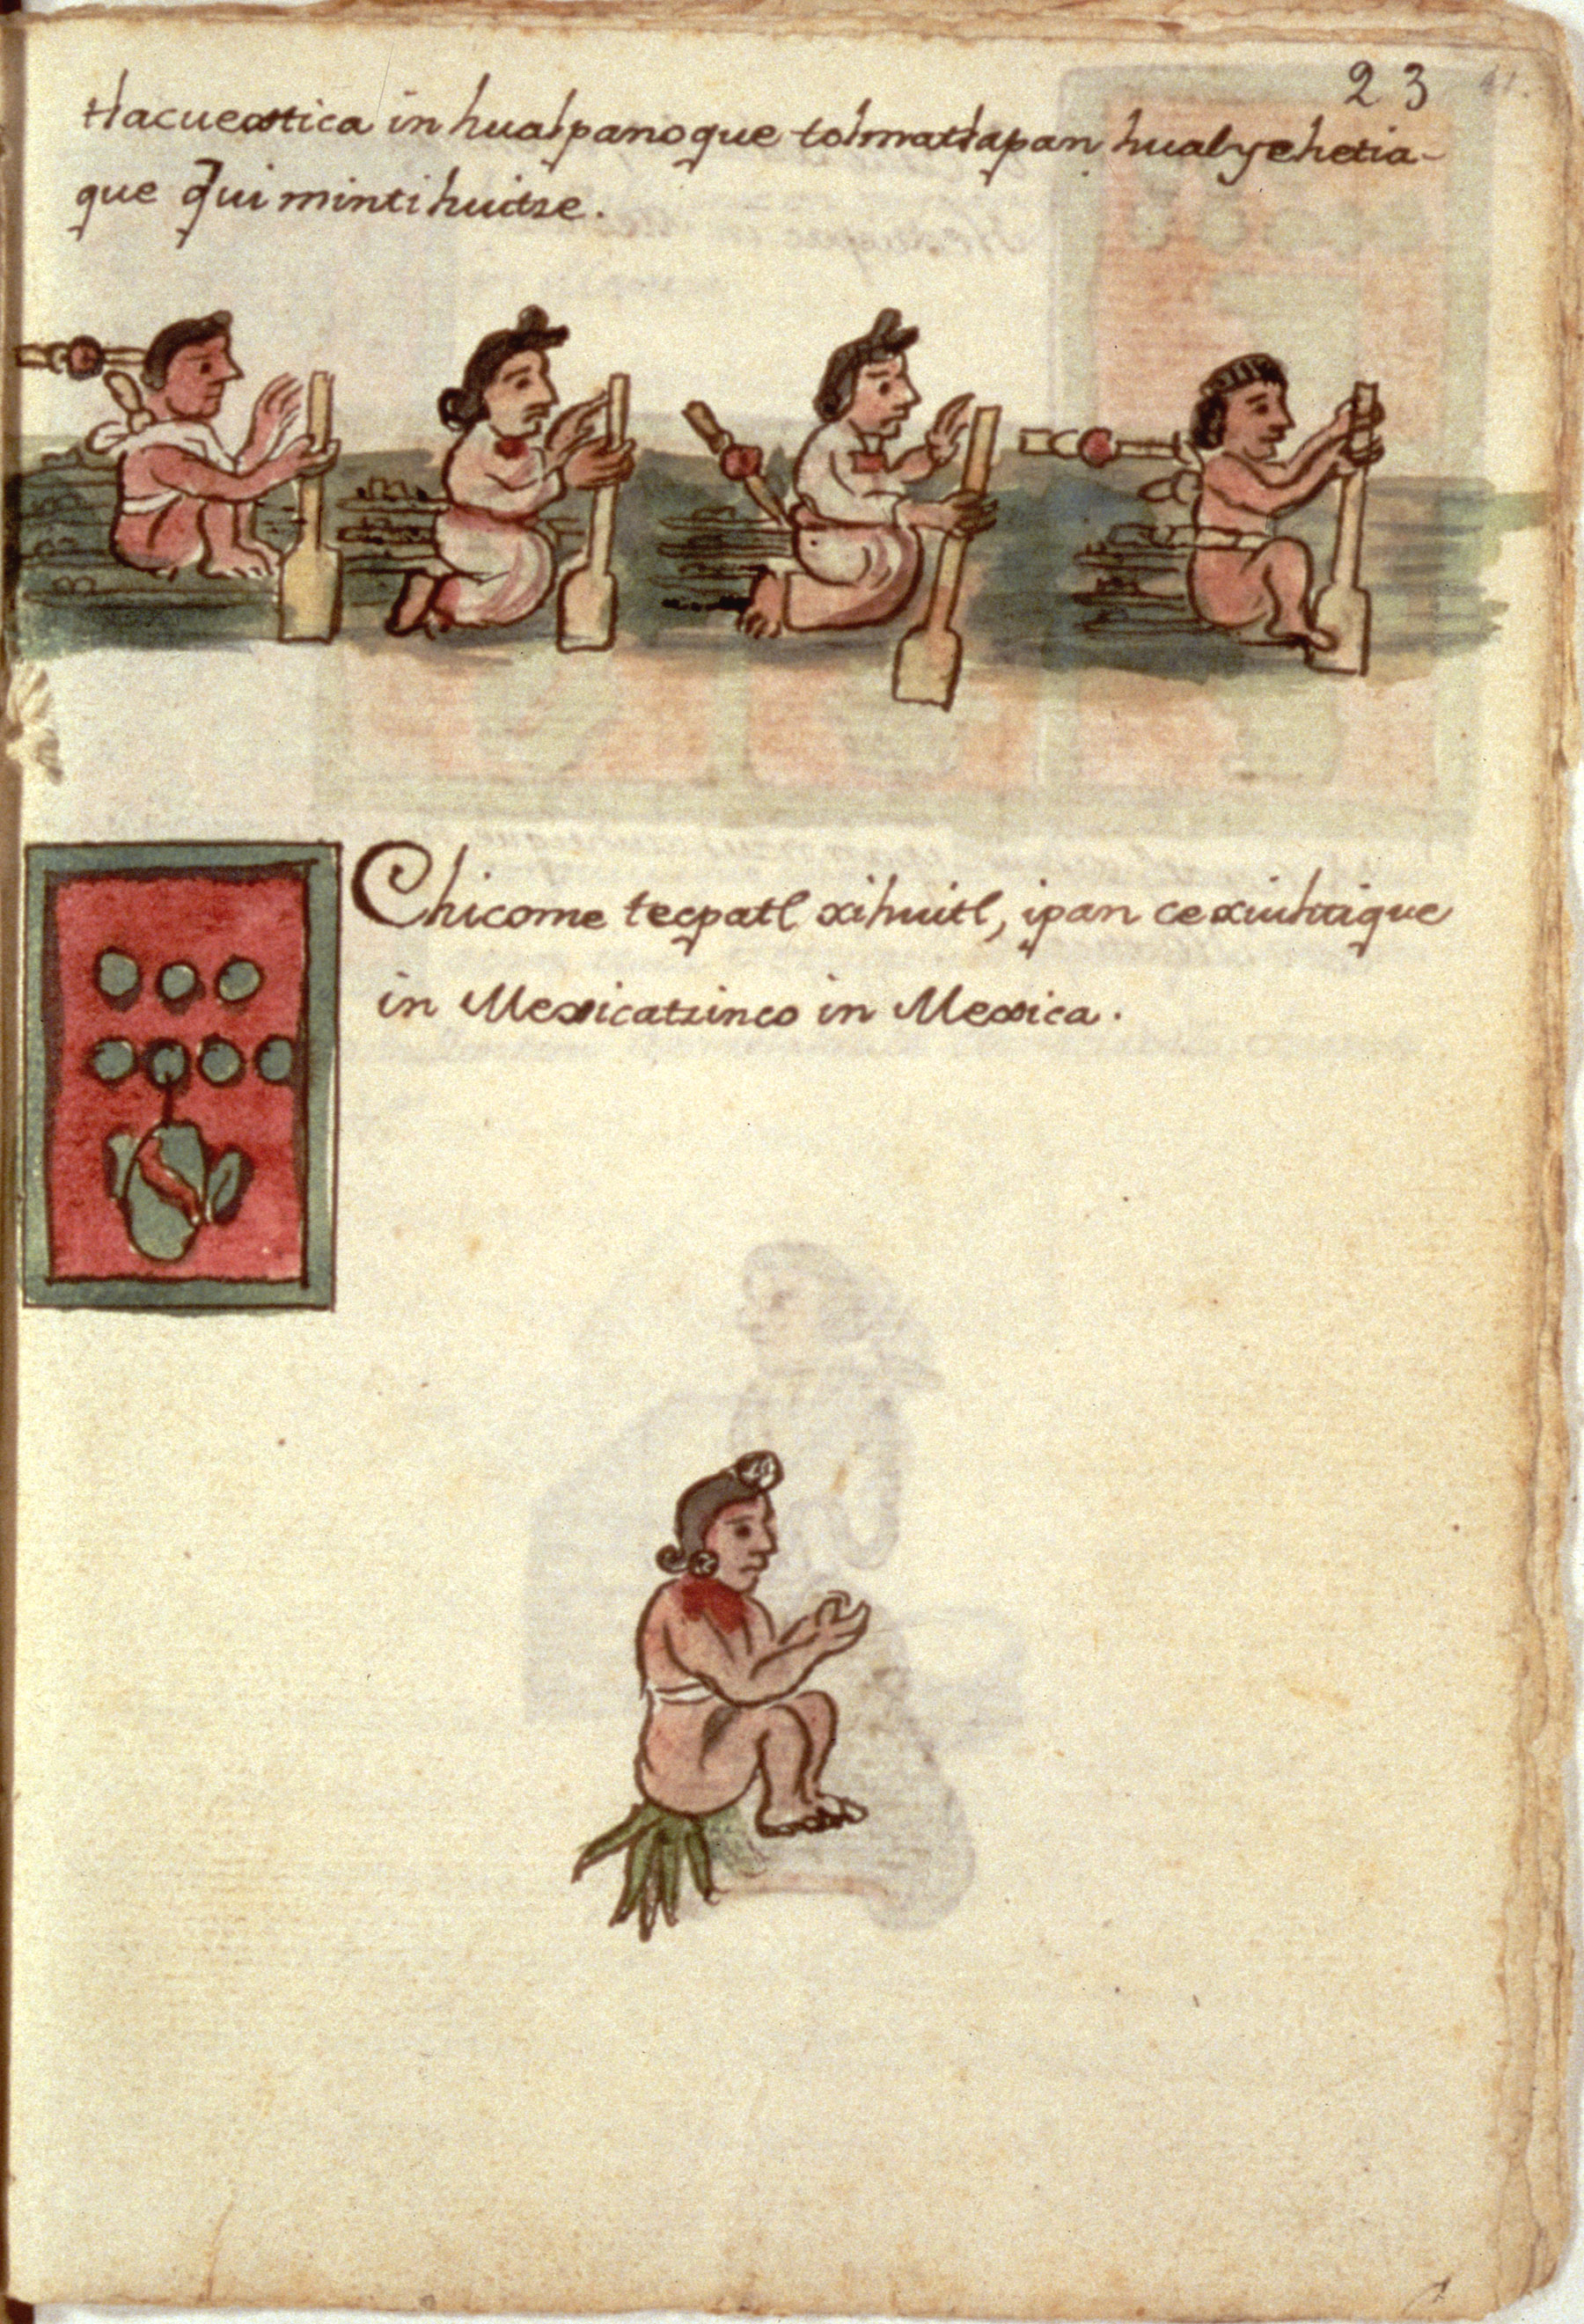 23
tlacuextica in hualpanoque tolmatlapan hualyehetia-
que quimintihuitze.
Chicome tecpatl xihuitl, ipan cexiuhtique
in Mexicatzinco in Mexica.